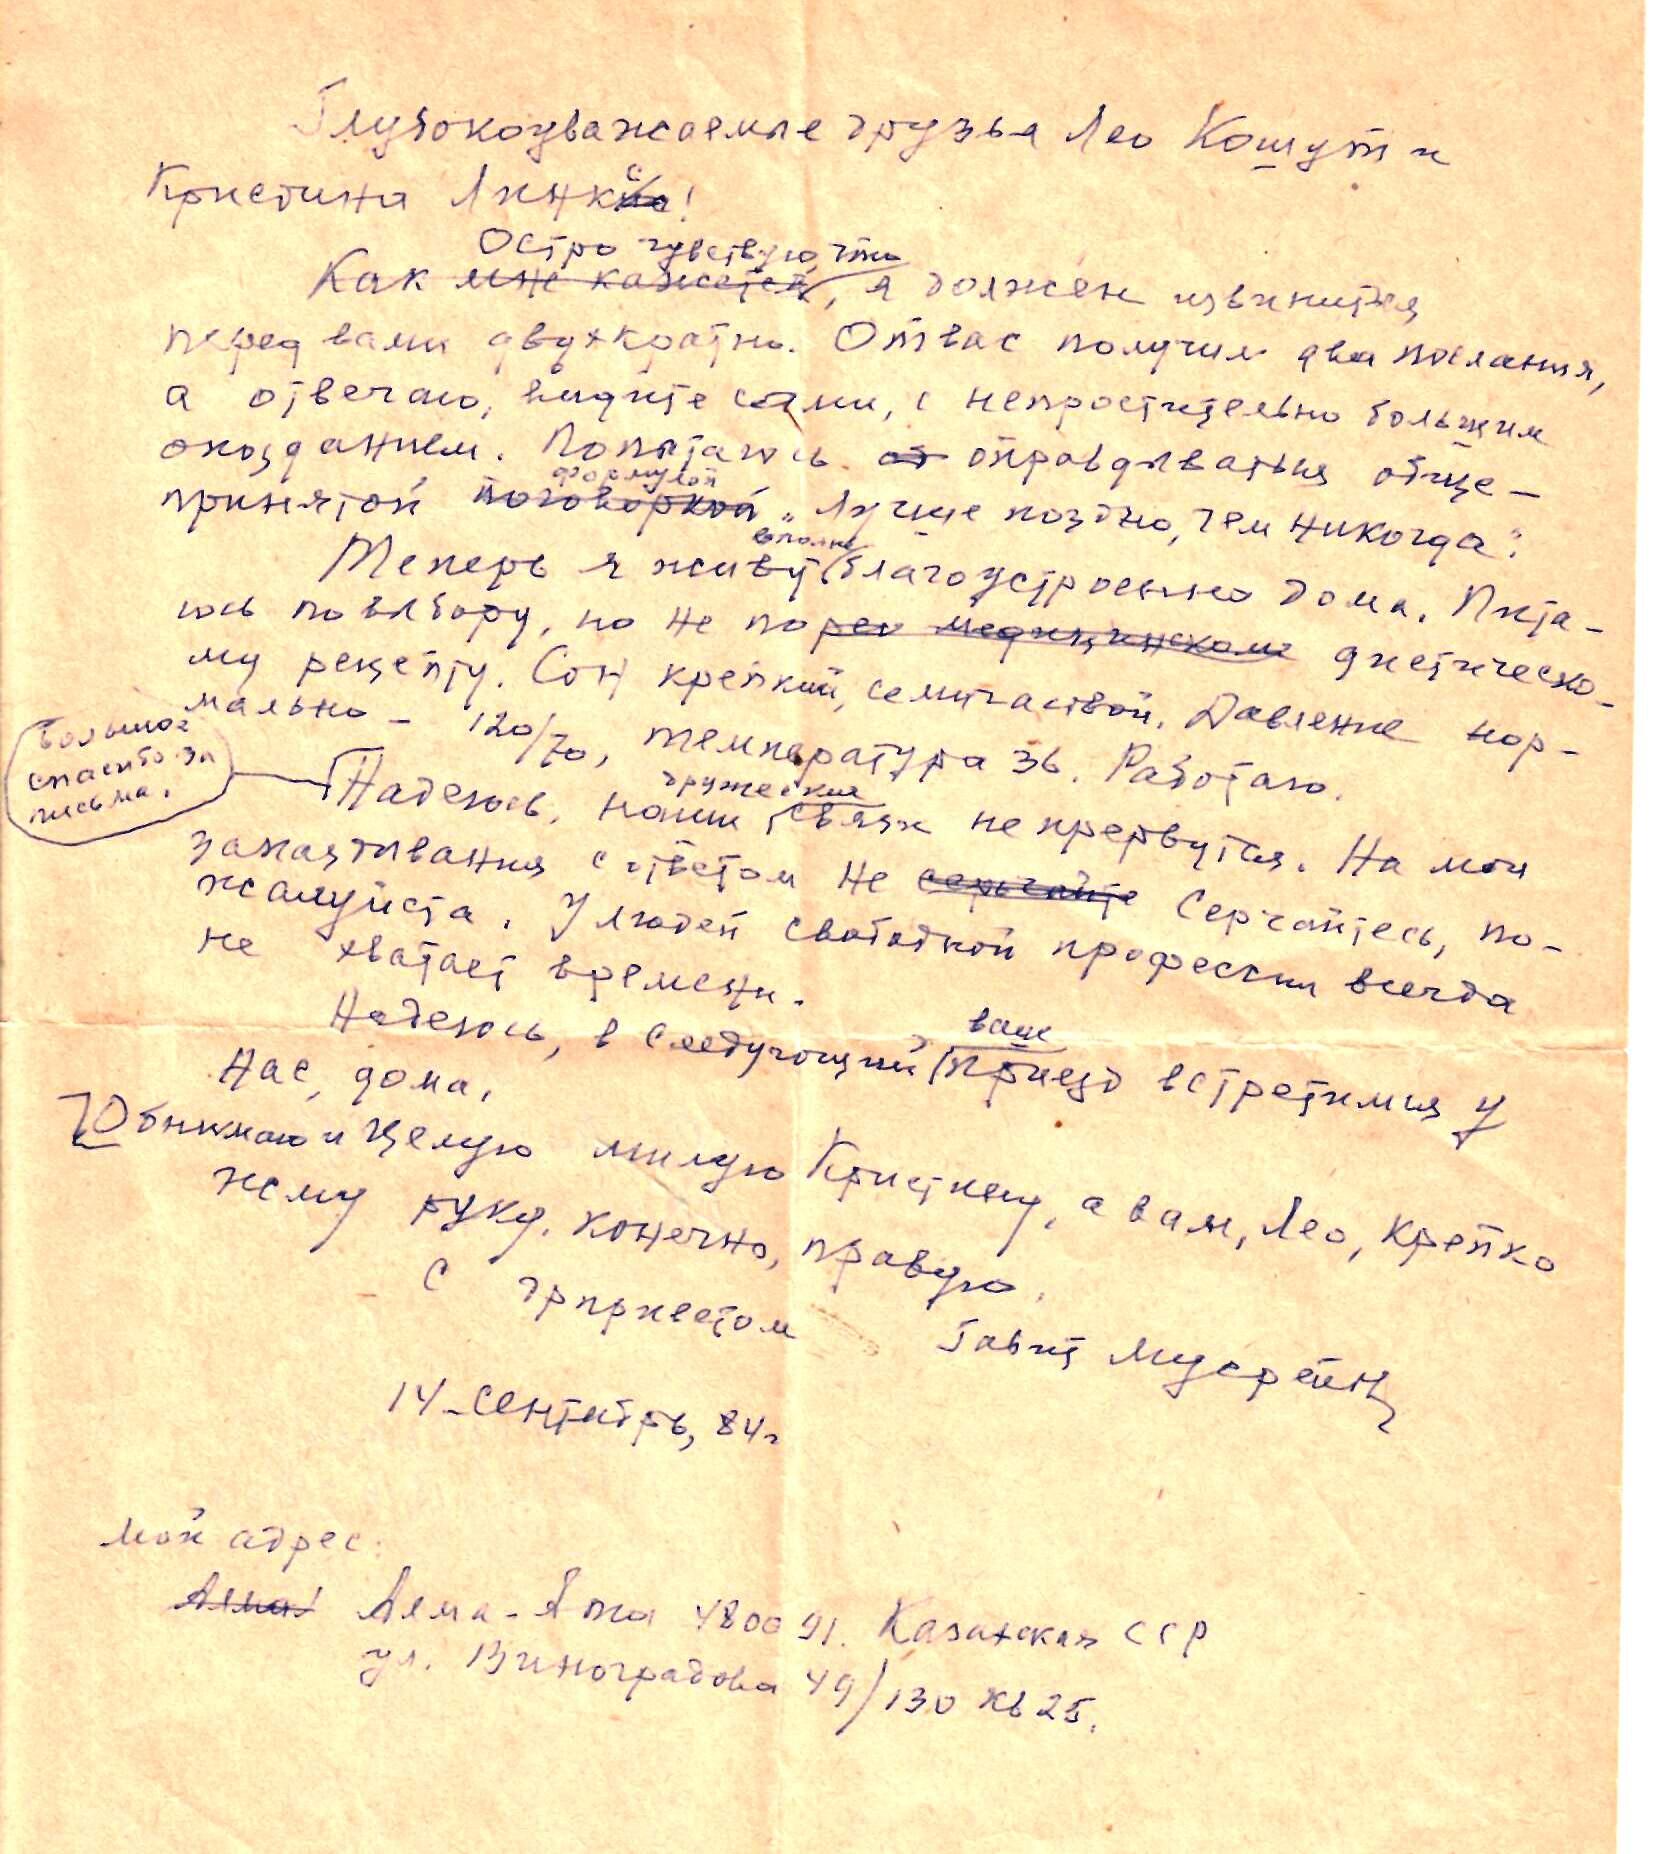 Глубокоуважаемые друзья Лео Кошут и
Кристина Линке!
Остро чувствую, что
Как мне кажется, я должен извиниться
перед вами двухкратно. От вас получил два послания,
а отвечаю, видите сами, с непростительно большим
опозданием. Попытаюсь от оправдываться обще-
формулой
принятой поговоркой „Лучше поздно, чем никогда".
вполне
Теперь я живу благоустроенно дома. Пита-
юсь по выбору, но не по рец медицинскому диетическо-
му рецепту. Сон крепкий, семичасовой. Давление нор-
мально - 120/70, температура 36. Работаю.
Большое
спасибо за
письма.
дружеские
Надеюсь, наши связи не прервутся. На мои
запаздывания с ответом не серчайте Серчайтесь, по-
жалуйста. У людей свободной профессии всегда
не хватает времени.
ваш
Надеюсь, в следующий приезд встретимся у
нас, дома.
Обнимаю и целую милую Кристину, а вам, Лео, крепко
жму руку, конечно, правую.
С приветом
Габит Мусрепов
14 сентябрь, 84 г
Мой адрес:
Алма Алма-Ата 480091. Казахская ССР
ул. Виноградова 49/130 кв 25.